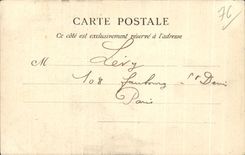 76
CARTE POSTALE
Ce côté est exclusivement réservé à l'adresse
M Levy
108 faubourg St Denis
Paris